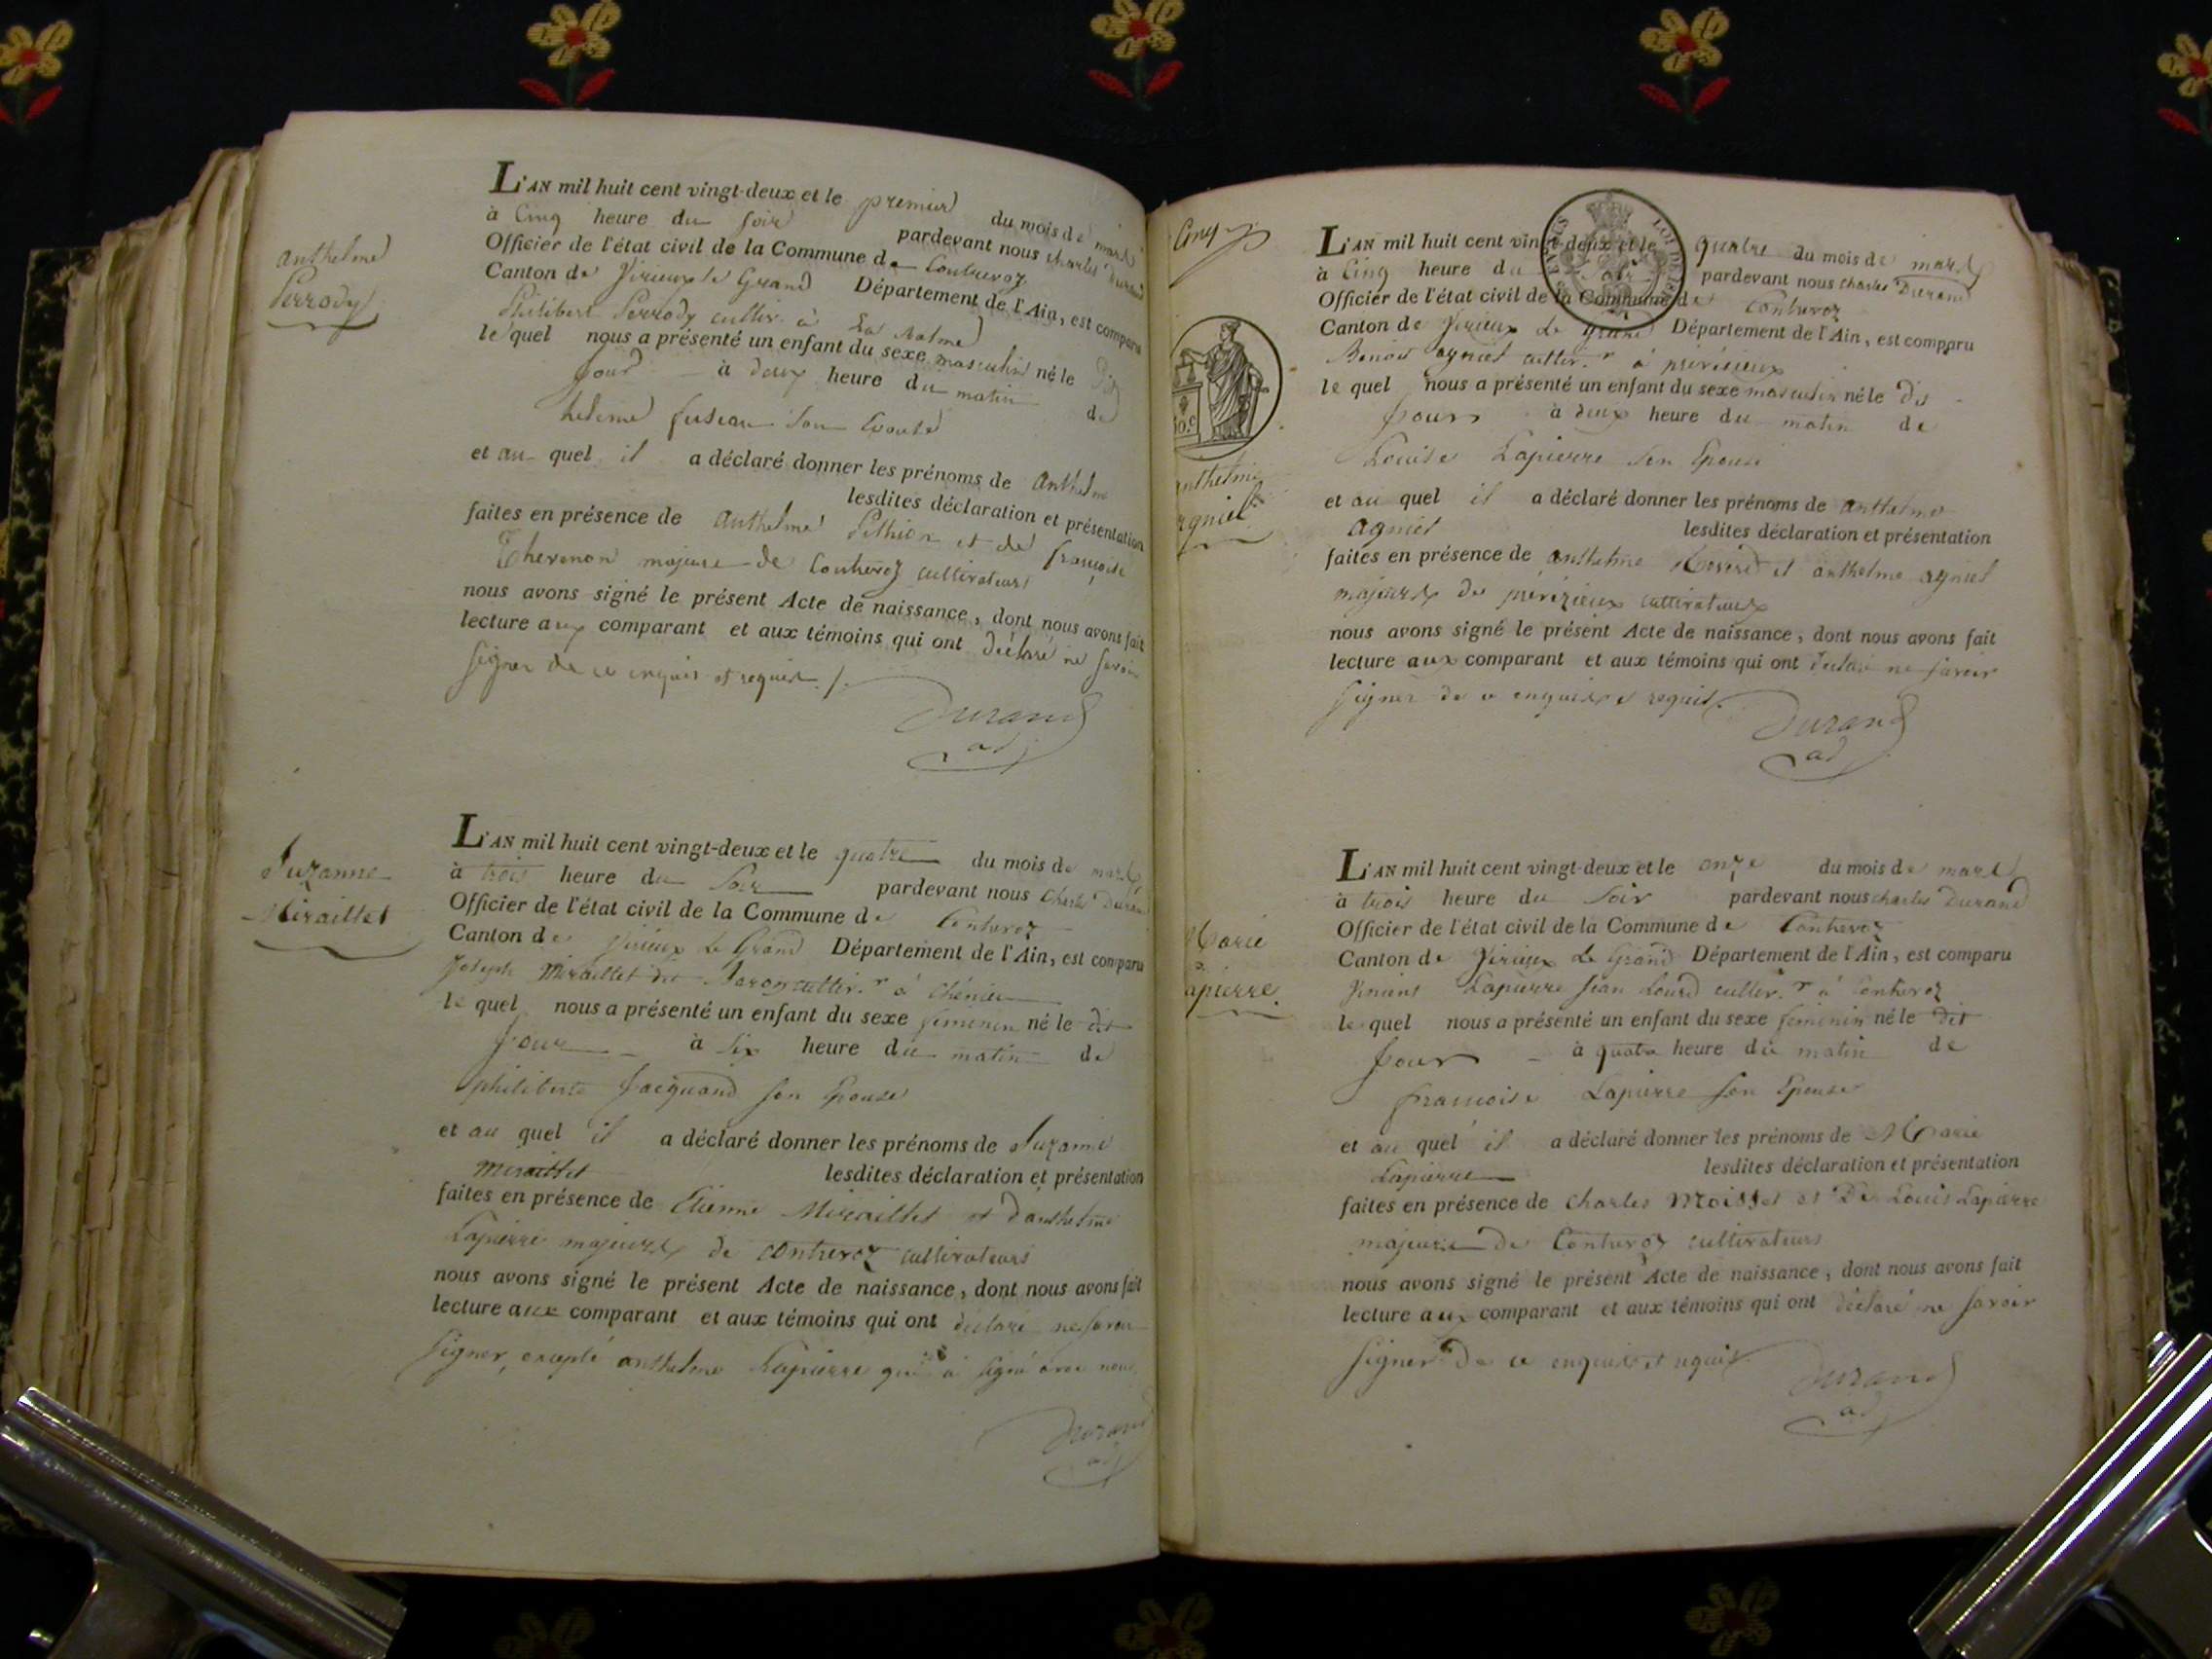 anthelme
Perrody
L'AN mil huit cent vingt-deux et le premier du mois de mars
à Cinq heure du soir pardevant nous charles Durand
Officier de l'état civil de la Commune de Contrevoz
Canton de Virieux le Grand Département de l'Ain, est comparu
Philibert Perrody cultiv. à La Balme
le quel nous a présenté un enfant du sexe masculin né le dit
jour à deux heure du matin de
fuseau son Epouse
et au quel il a déclaré donner les prénoms de anthelme
lesdites déclaration et présentation
faites en présence de anthelme Pithion et de françois
Thevenon majeurs de Contrevoz cultivateurs
nous avons signé le présent Acte de naissance, dont nous avons fait
lecture aux comparant et aux témoins qui ont déclaré ne savoir
signer de ce enquis et requis ./.
Durand
ad
Suzanne
Miraillet
L'AN mil huit cent vingt-deux et le quatre du mois de mars
à trois heure du Soir pardevant nous Charles Durand
Officier de l'état civil de la Commune de Contrevoz
Canton de Virieux le Grand Département de l'Ain, est comparu
Joseph Miraillet dit cultiv.r à
le quel nous a présenté un enfant du sexe femenin né le dit
jour à six heure du matin de
philiberte Jacquand son Epouse
et au quel il a déclaré donner les prénoms de Suzanne
Miraillet lesdites déclaration et présentation
faites en présence de Etienne Miraillet et d'anthelme
Lapierre majeurs de contrevoz cultivateurs
nous avons signé le présent Acte de naissance, dont nous avons fait
lecture aux comparant et aux témoins qui ont déclaré ne savoir
signer, excepté anthelme Lapierre qui a signé avec nous
Durand
ad
Cinq
50.c
anthelme
agniel
L'AN mil huit cent vingt-deux et le quatre du mois de mars
à Cinq heure du Soir pardevant nous charles Durand
Officier de l'état civil de la Commune de Contrevoz
Canton de Virieux Le Grand Département de l'Ain, est comparu
Benoit agniel cultiv.r à
le quel nous a présenté un enfant du sexe masculin né le dit
jour à deux heure du matin de
Louise Lapierre son Epouse
et au quel il a déclaré donner les prénoms de anthelme
agniel lesdites déclaration et présentation
faites en présence de anthelme et anthelme agniel
majeurs de cultivateurs
nous avons signé le présent Acte de naissance, dont nous avons fait
lecture aux comparant et aux témoins qui ont déclaré ne savoir
signer de ce enquis et requis
Durand
ad
Marie
Lapierre
L'AN mil huit cent vingt-deux et le onze du mois de mars
à trois heure du Soir pardevant nous charles Durand
Officier de l'état civil de la Commune de Contrevoz
Canton de Virieux Le Grand Département de l'Ain, est comparu
Lapierre jean cultiv.r à Contrevoz
le quel nous a présenté un enfant du sexe femenin né le dit
jour à quatre heure du matin de
francoise Lapierre son Epouse
et au quel il a déclaré donner les prénoms de Marie
Lapierre lesdites déclaration et présentation
faites en présence de charles Moissel et De Louis Lapierre
majeurs de Contrevoz cultivateurs
nous avons signé le présent Acte de naissance, dont nous avons fait
lecture aux comparant et aux témoins qui ont déclaré ne savoir
signer de ce enquis et requis
Durand
ad